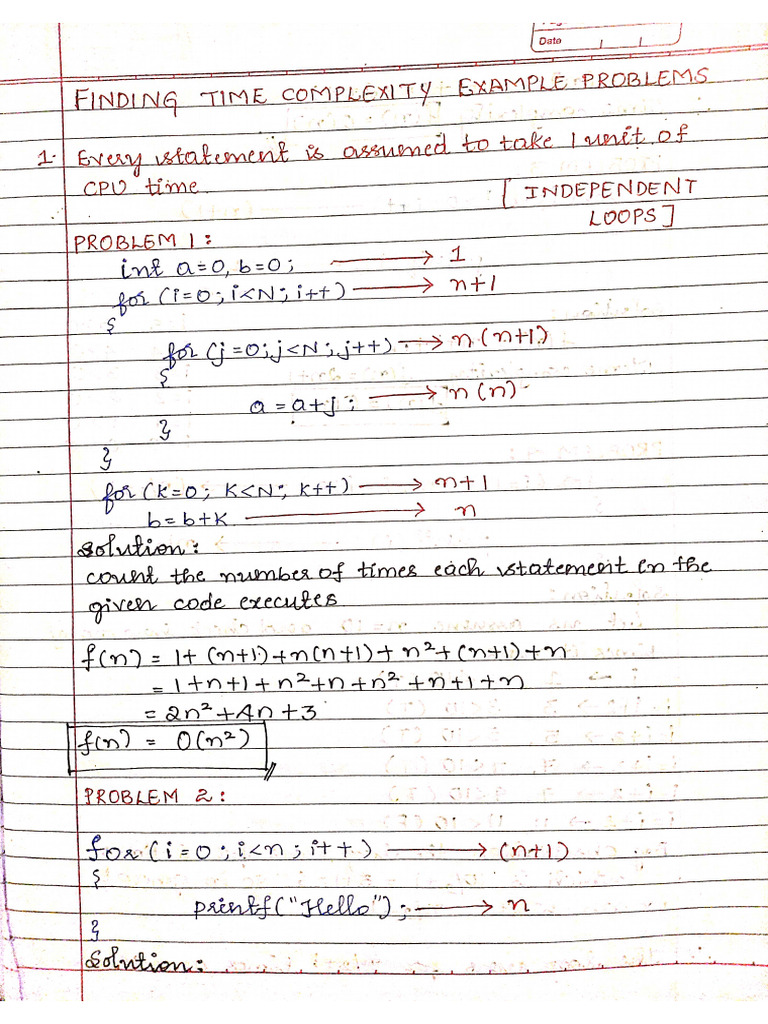 Date
FINDING TIME COMPLEXITY EXAMPLE PROBLEMS
1. Every statement is assumed to take 1 unit of
CPU time
[INDEPENDENT
LOOPS]
PROBLEM 1:
int a=0, b=0; → 1
for (i=0; i<N; i++) → n+1
{
for (j=0; j<N; j++) → n(n+1)
{
a = a+j; → n(n)
}
}
for (k=0; k<N; k++) → n+1
b=b+k → n
Solution:
count the number of times each statement in the
given code executes
f(n) = 1+ (n+1)+n(n+1)+ n²+(n+1)+n
= 1+n+1+n²+n+n²+n+1+n
= 2n²+4n+3
f(n) = O(n²)
PROBLEM 2:
for (i=0; i<n; i++) → (n+1)
{
printf("Hello"); → n
}
Solution: